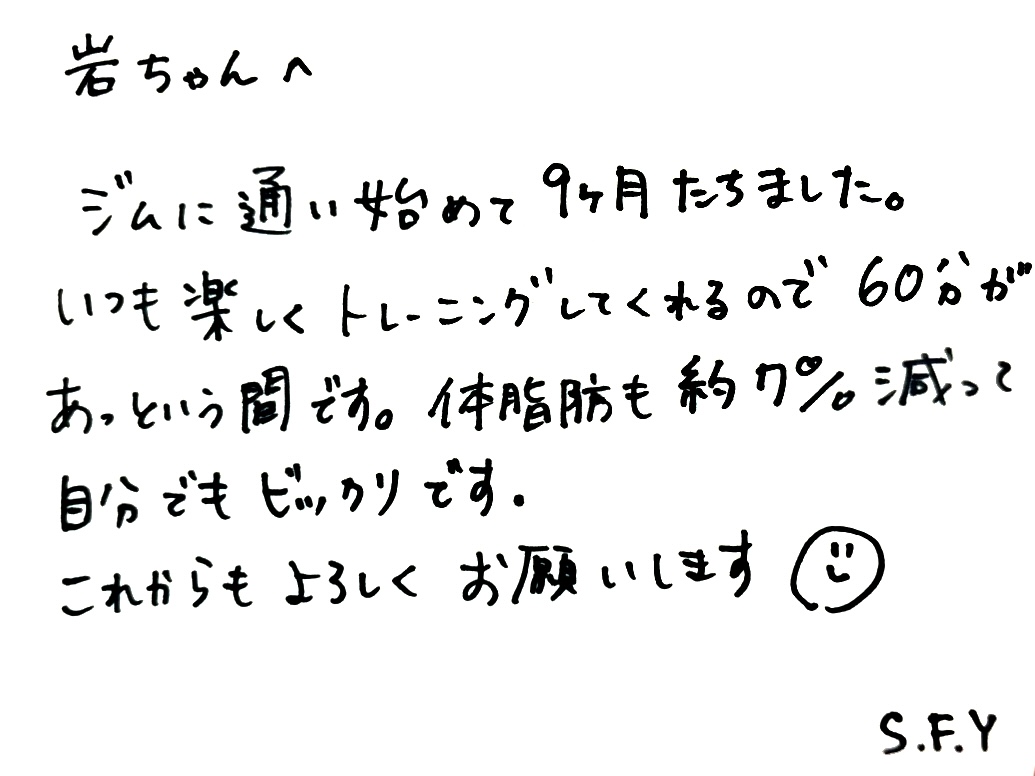 岩ちゃんへ
ジムに通い始めて9ヶ月たちました。
いつも楽しくトレーニングしてくれるので60分が
あっという間です。体脂肪も約7%減って
自分でもビックリです.
これからもよろしくお願いします
S.F.Y